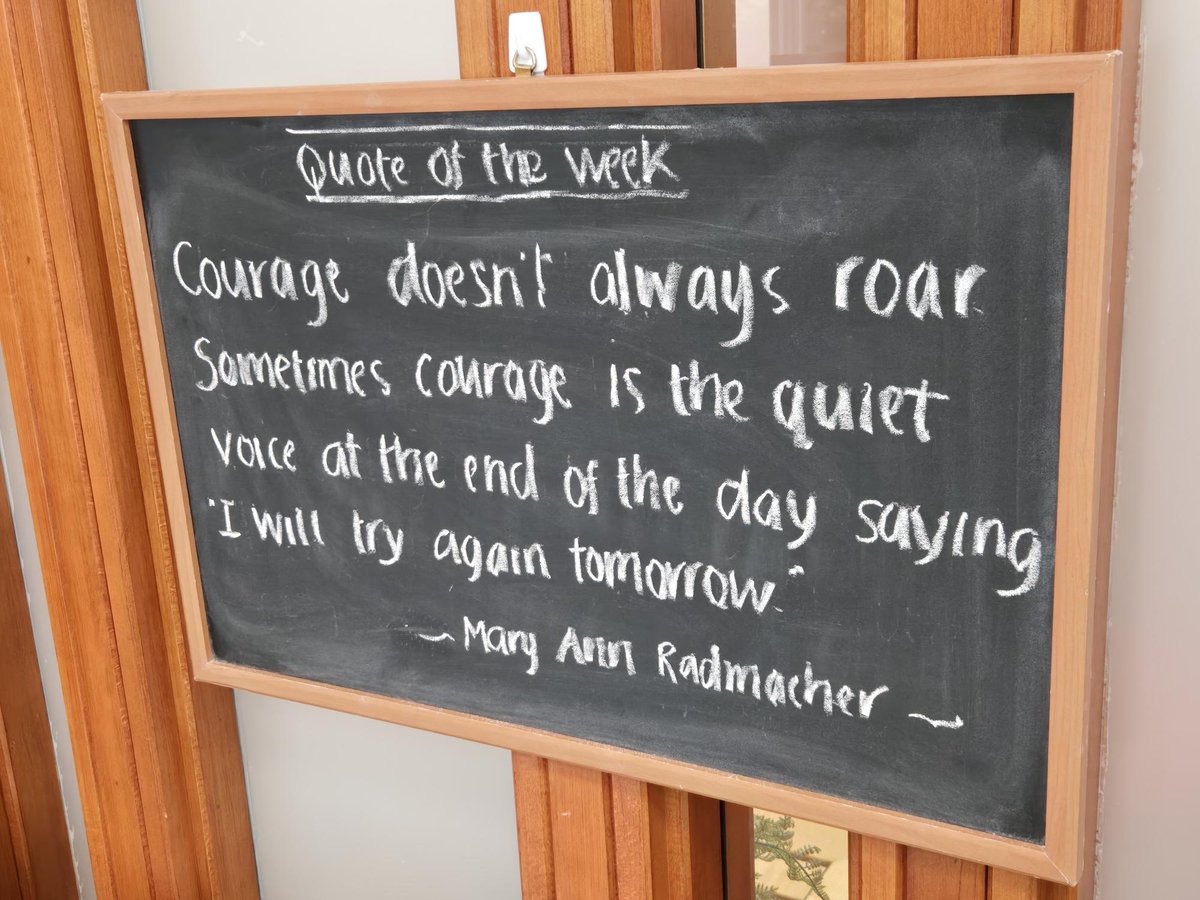 Quote of the week
Courage doesn't always roar
Sometimes courage is the quiet
voice at the end of the day saying
"I will try again tomorrow."
~ Mary Ann Radmacher ~